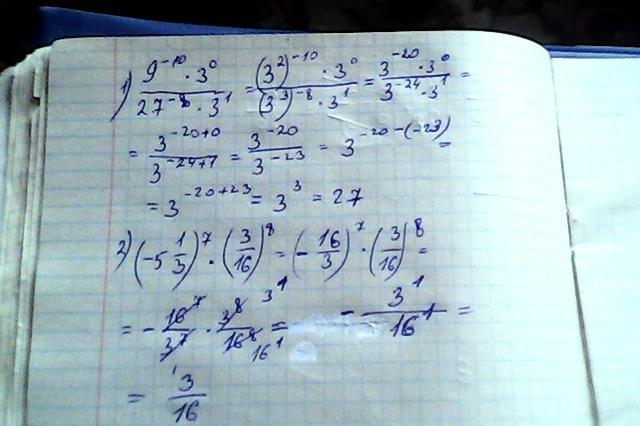 1) 9^-10 · 3^0 / 27^-8 · 3^1 = (3^2)^-10 · 3^0 / (3^3)^-8 · 3^1 = 3^-20 · 3^0 / 3^-24 · 3^1 =
= 3^-20+0 / 3^-24+1 = 3^-20 / 3^-23 = 3^-20-(-23) =
= 3^-20+23 = 3^3 = 27
2) (-5 1/3)^7 · (3/16)^8 = (-16/3)^7 · (3/16)^8 =
= - 16^7 / 3^7 · 3^8 3^1 / 16^8 16^1 = - 3^1 / 16^1 =
= 3/16